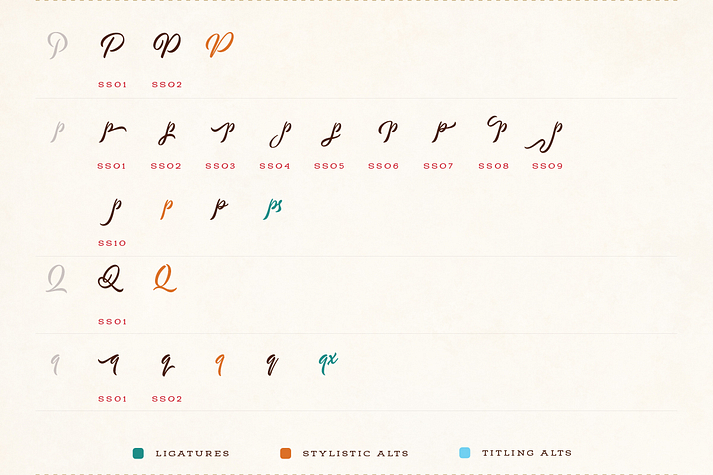 P P P P
SS01 SS02
p p p p p p p p p p
SS01 SS02 SS03 SS04 SS05 SS06 SS07 SS08 SS09
p p p ps
SS10
Q Q Q
SS01
q q q q q qx
SS01 SS02
LIGATURES STYLISTIC ALTS TITLING ALTS